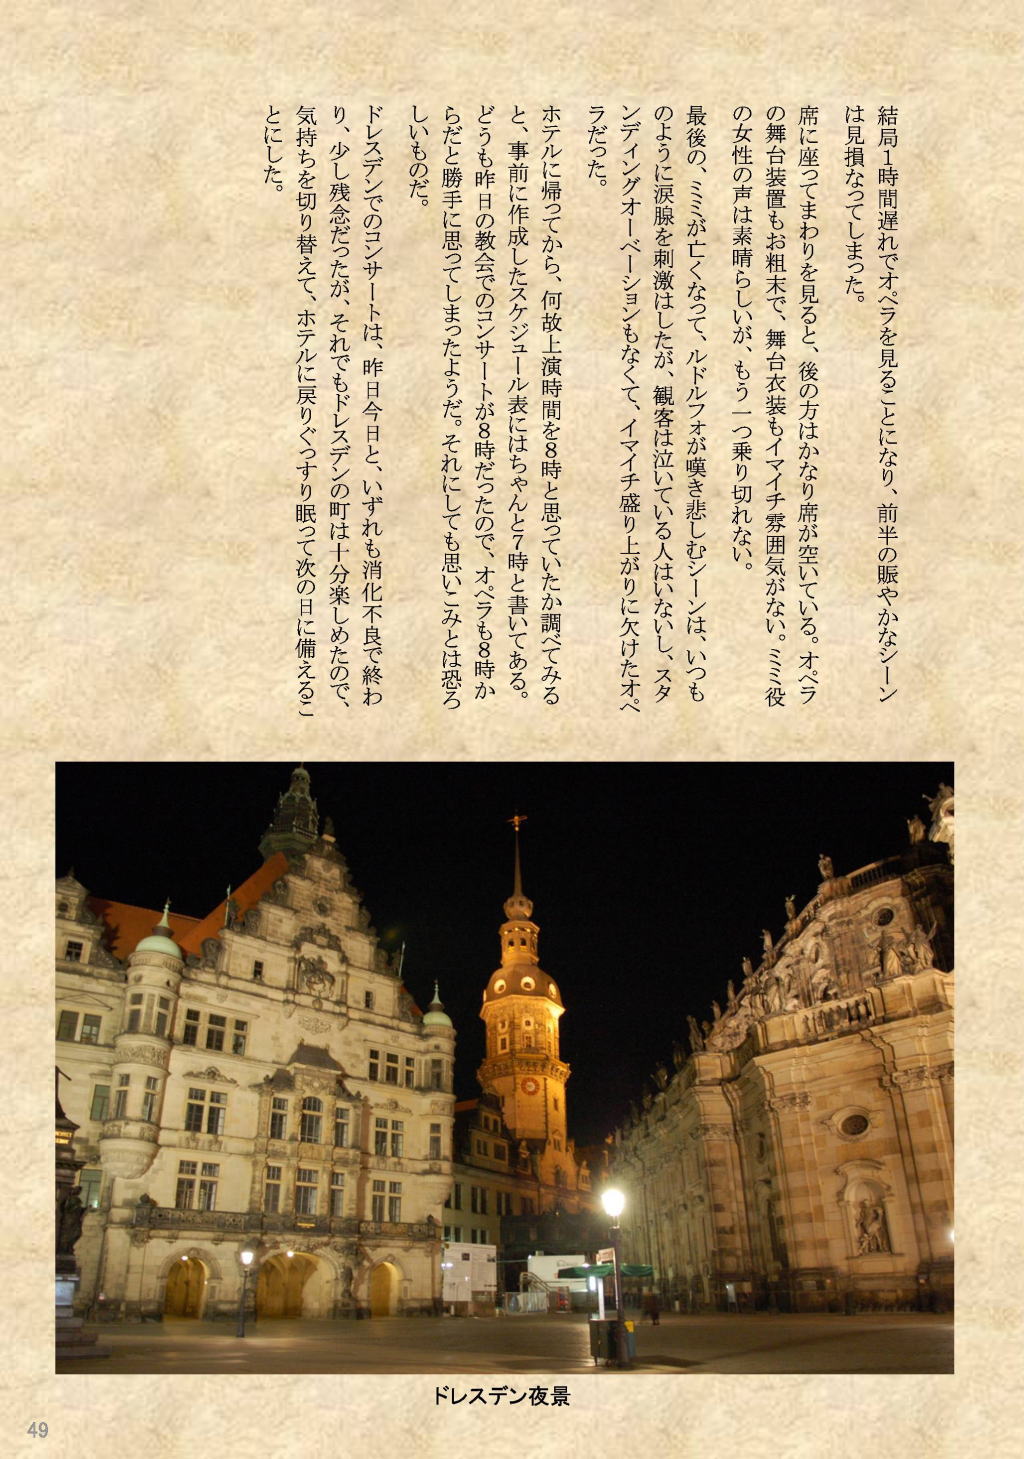 結局１時間遅れでオペラを見ることになり、前半の賑やかなシーン
は見損なってしまった。
席に座ってまわりを見ると、後の方はかなり席が空いている。オペラ
の舞台装置もお粗末で、舞台衣装もイマイチ雰囲気がない。ミミ役
の女性の声は素晴らしいが、もう一つ乗り切れない。
最後の、ミミが亡くなって、ルドルフォが嘆き悲しむシーンは、いつも
のように涙腺を刺激はしたが、観客は泣いている人はいないし、スタ
ンディングオーベーションもなくて、イマイチ盛り上がりに欠けたオペ
ラだった。
ホテルに帰ってから、何故上演時間を８時と思っていたか調べてみる
と、事前に作成したスケジュール表にはちゃんと７時と書いてある。
どうも昨日の教会でのコンサートが８時だったので、オペラも８時か
らだと勝手に思ってしまったようだ。それにしても思いこみとは恐ろ
しいものだ。
ドレスデンでのコンサートは、昨日今日と、いずれも消化不良で終わ
り、少し残念だったが、それでもドレスデンの町は十分楽しめたので、
気持ちを切り替えて、ホテルに戻りぐっすり眠って次の日に備えるこ
とにした。
ドレスデン夜景
49